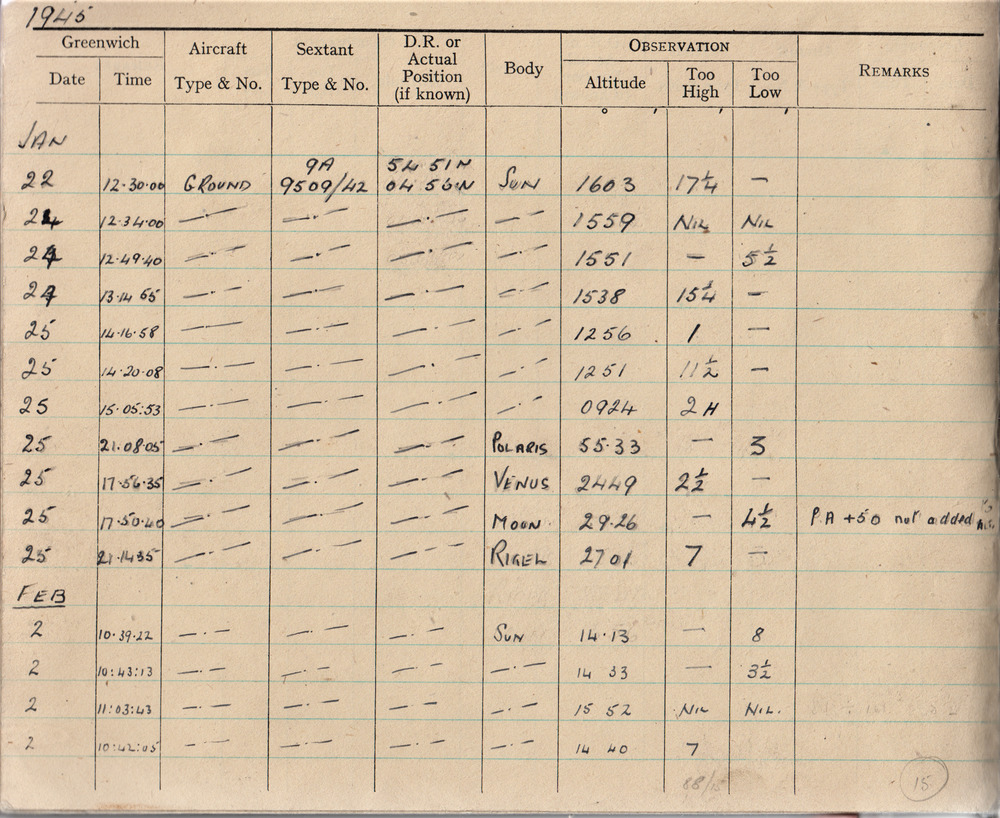 1945
Greenwich Aircraft Sextant D.R. or Actual Position (if known) Body OBSERVATION REMARKS
Date Time Type & No. Type & No. Altitude Too High Too Low
° ′ ′ ′
JAN
9A 54 51N
22 12·30·00 GROUND 9509/42 04 56 N SUN 1603 17¼ —
24 12·34·00 —·— —·— —·— —·— 1559 NIL NIL
24 12·49·40 —·— —·— —·— —·— 1551 — 5½
24 13·14 65 —·— —·— —·— —·— 1538 15¼ —
25 14·16·58 —·— —·— —·— —·— 1256 1 —
25 14·20·08 —·— —·— —·— —·— 1251 11½ —
25 15·05:53 —·— —·— —·— —·— 0924 2
25 21·08·05 —·— —·— —·— POLARIS 55·33 — 3
25 17·56·35 —·— —·— —·— VENUS 2449 2½ —
25 17·50·40 —·— —·— —·— MOON 29·26 — 4½ P.A +50 not added to
25 21·1435 —·— —·— —·— RIGEL 2701 7 —
FEB
2 10·39·22 —·— —·— —·— SUN 14·13 — 8
2 10:43:13 —·— —·— —·— —·— 14 33 — 3½
2 11:03:43 —·— —·— —·— —·— 15 52 NIL NIL.
2 10:42:05 —·— —·— —·— —·— 14 40 7
88/15 15